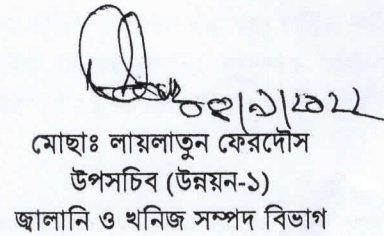 মোছাঃ লায়লাতুন ফেরদৌস
উপসচিব (উন্নয়ন-১)
জ্বালানি ও খনিজ সম্পদ বিভাগ